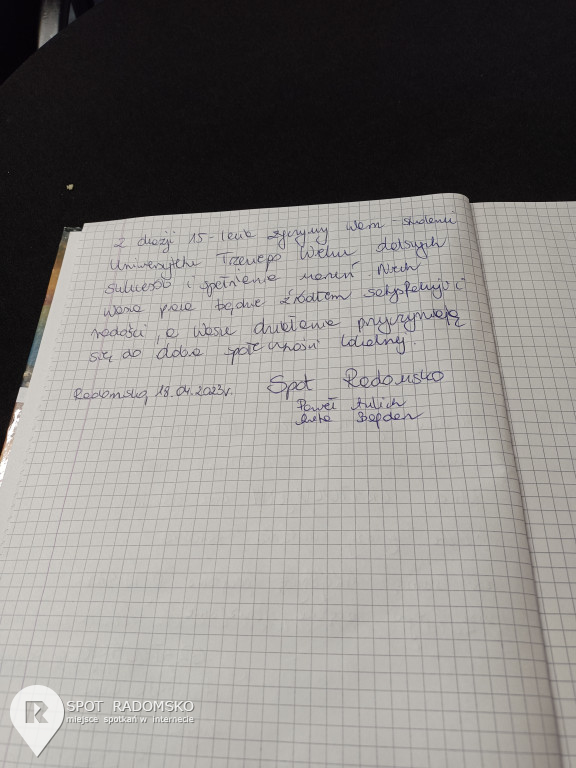 Z okazji 15-lecia życzymy Wam - studentom
Uniwersytetu Trzeciego Wieku dalszych
sukcesów i spełnienia marzeń. Niech
Wasza praca będzie źródłem satysfakcji i
radości, a Wasze działania przyczyniają
się do dobra społeczności lokalnej.
Radomsko, 18.04.2023r. Spot Radomsko
Paweł
Bogdan
SPOT RADOMSKO
miejsce spotkań w internecie